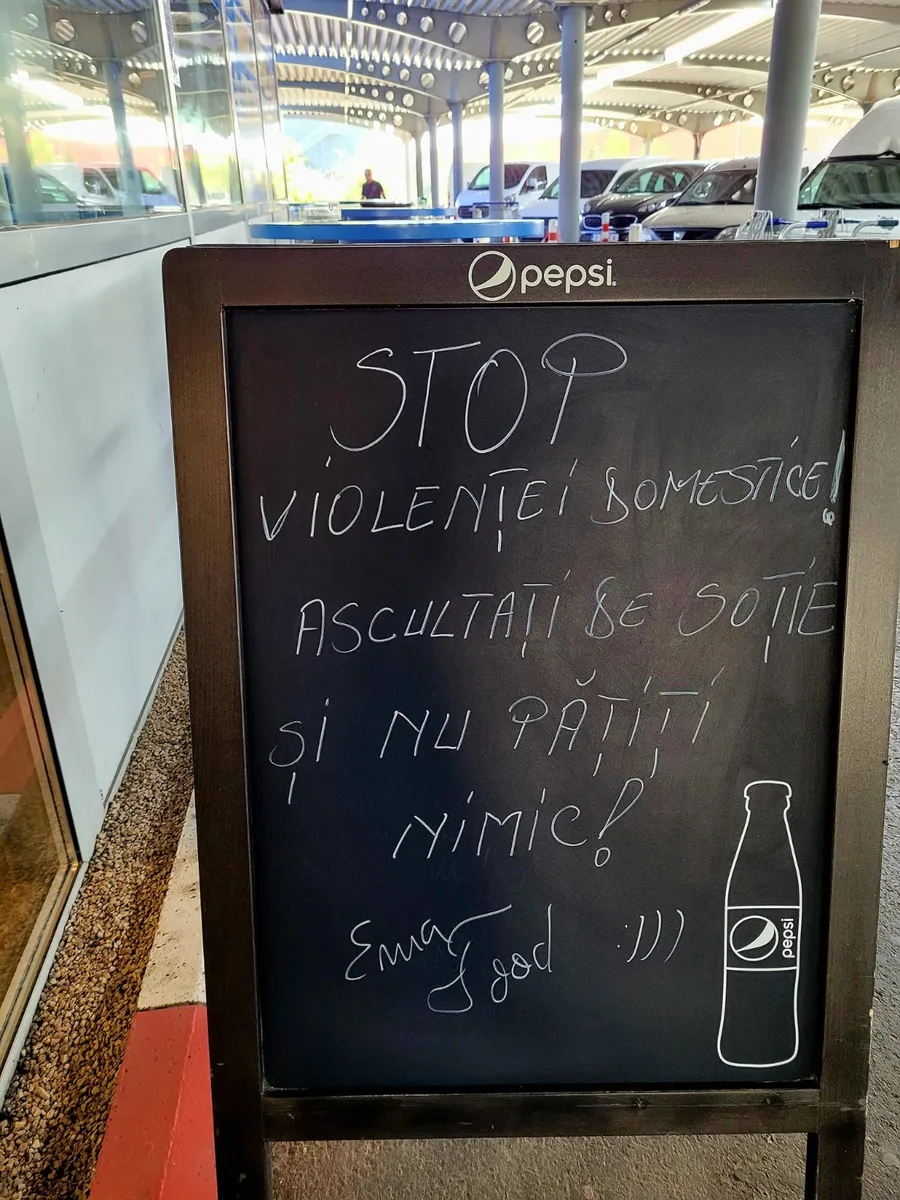 pepsi
STOP
VIOLENȚEI DOMESTICE!
ASCULTAȚI DE SOȚIE
ȘI NU PĂȚIȚI
NIMIC!
Ema Food :)))
pepsi